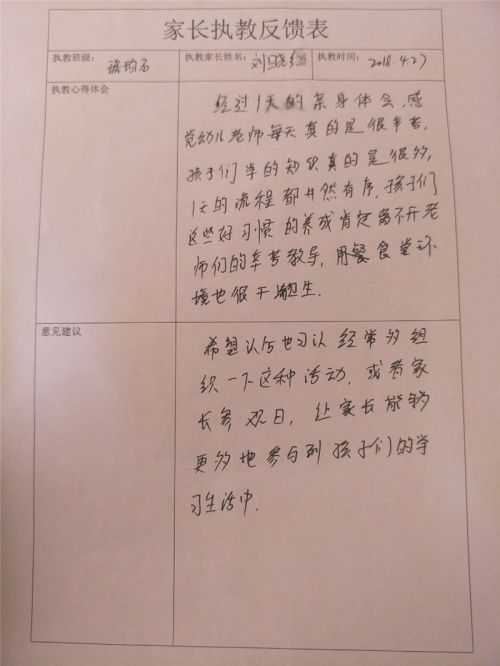 家长执教反馈表
执教班级： 执教家长姓名：刘晓红 执教时间：2018.4.27
执教心得体会
经过1天的亲身体会，感
觉幼儿老师每天真的是很辛苦，
孩子们学的知识真的是很多，
1天的流程都井然有序，孩子们
这些好习惯的养成肯定离不开老
师们的辛苦教导，用餐食堂环
境也很干净卫生.
意见建议
希望以后也可以经常多组
织一下这种活动，或者家
长参观日，让家长能够
更多地参与到孩子们的学
习生活中.